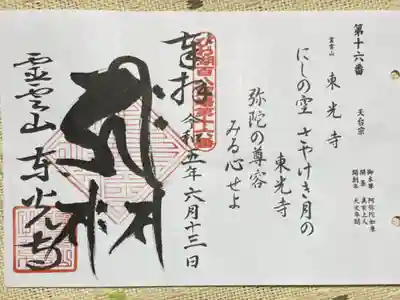 第十六番
天台宗
霊雲山
東光寺
御本尊 阿弥陀如来
開基 真盛上人
開創年 大文年間
にしの空 さやけき月の
東光寺
弥陀の尊容
みる心せよ
奉拝
令和五年六月十三日
霊雲山 东光寺